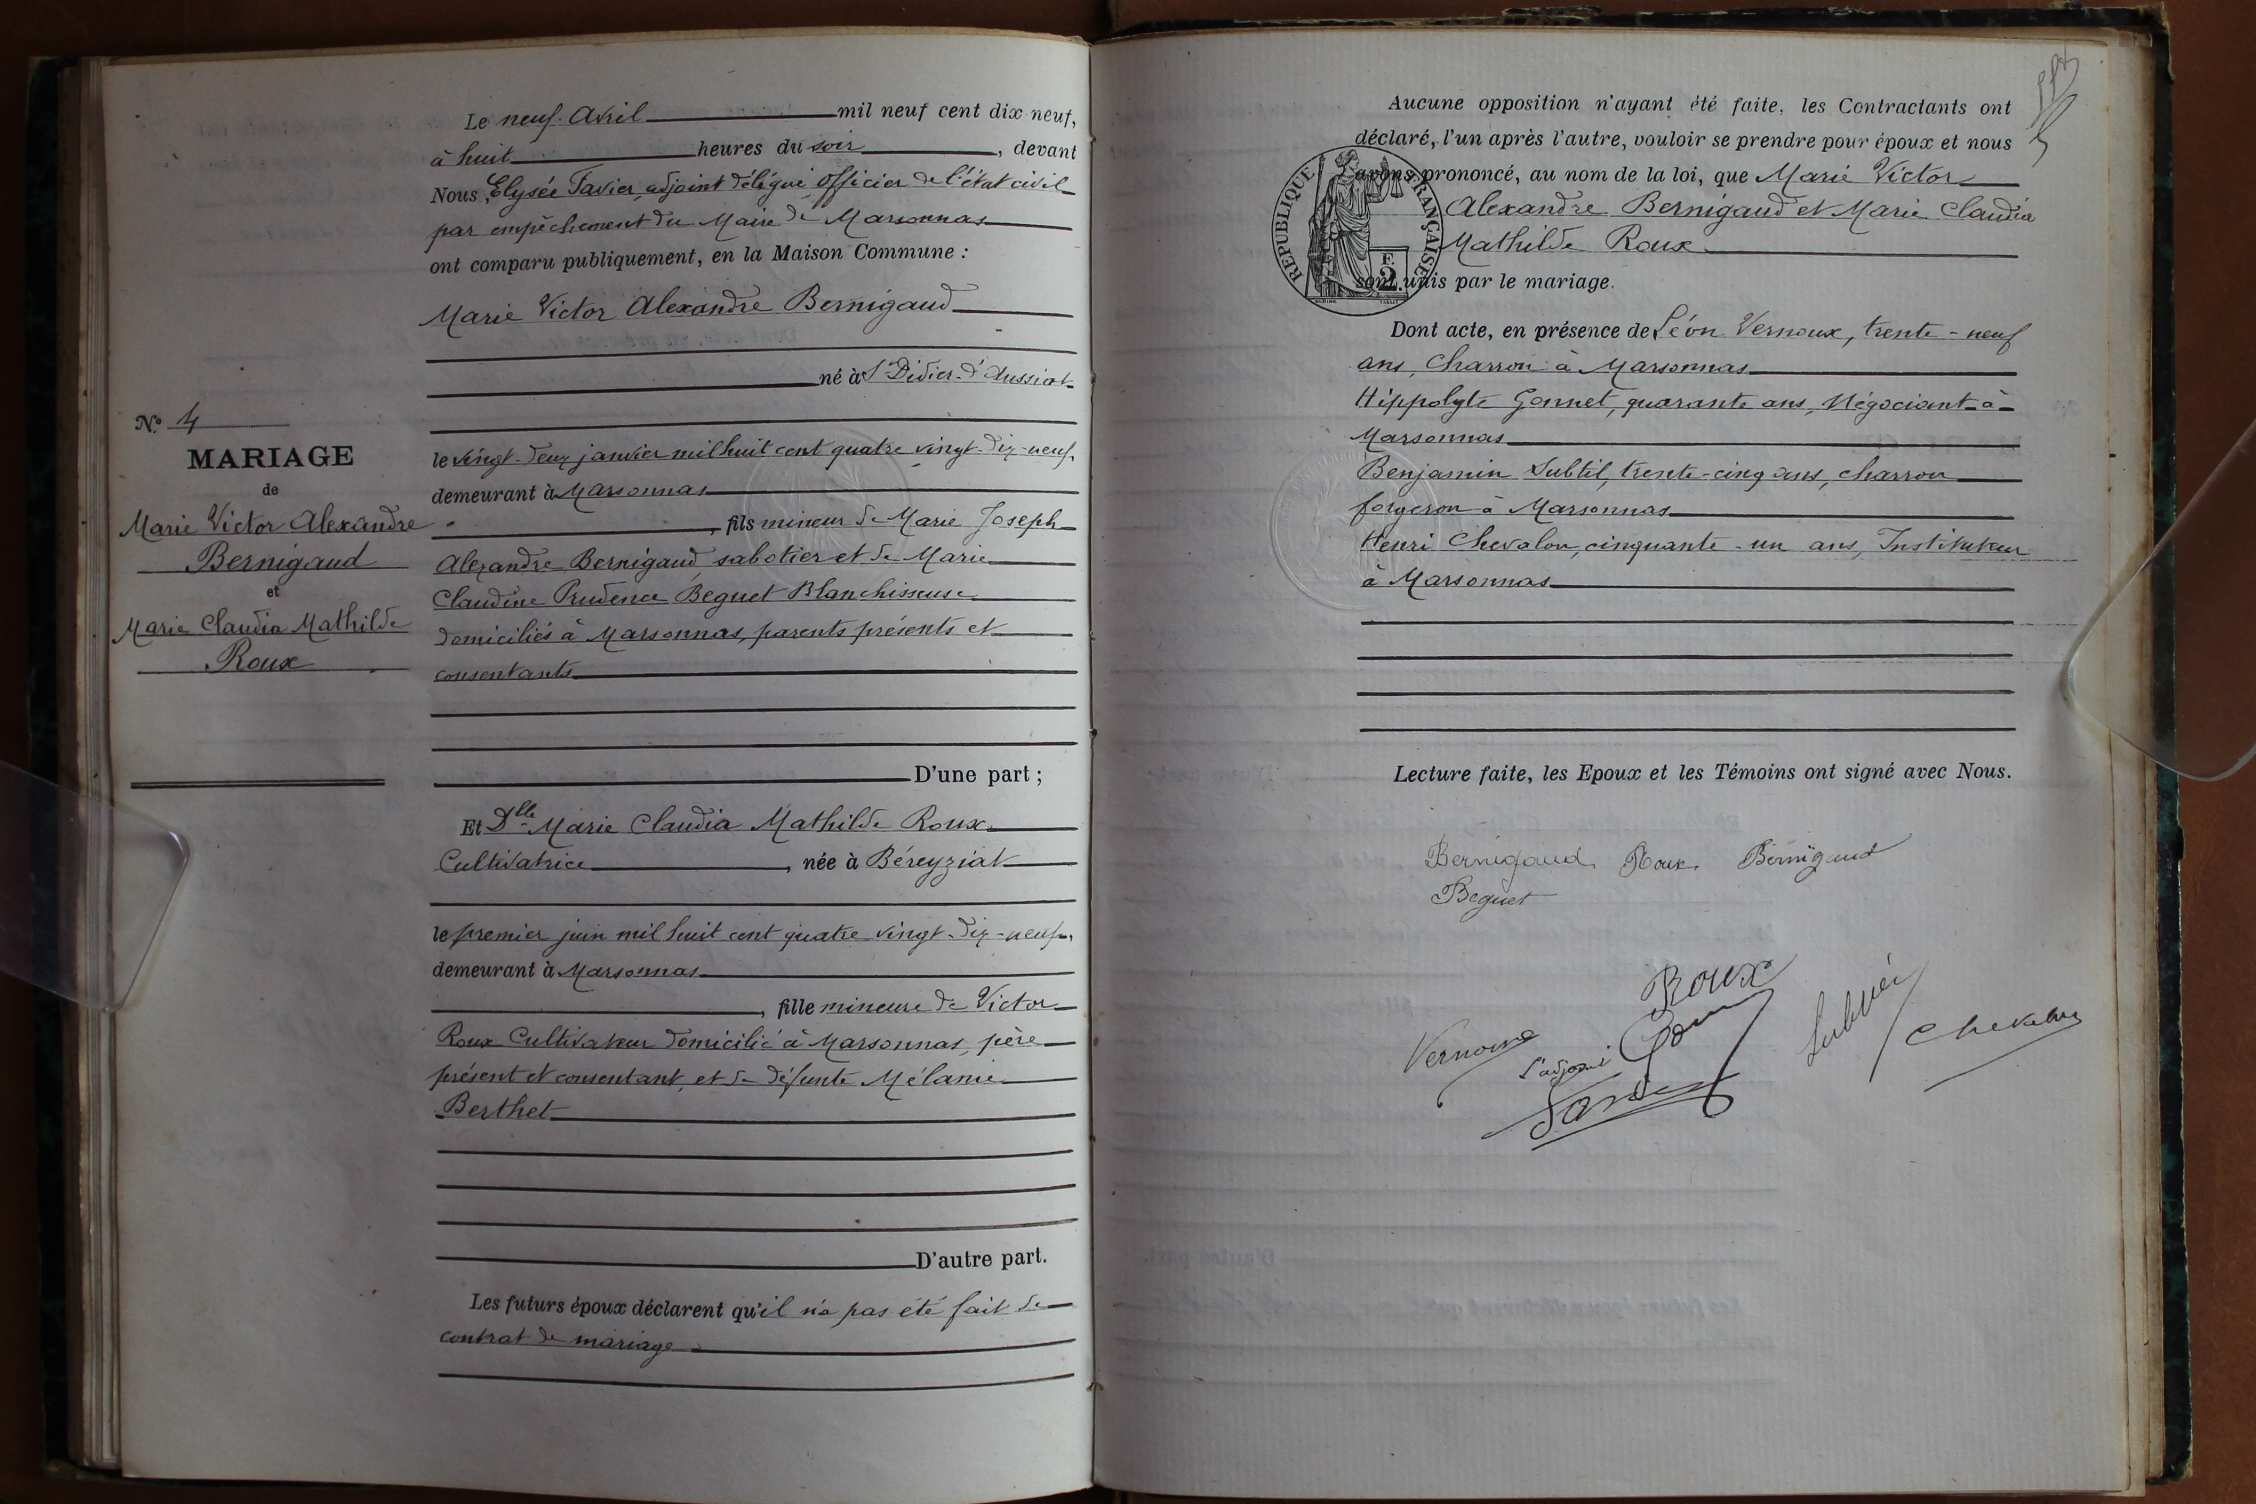 N.º 4
MARIAGE
de
Marie Victor Alexandre
Bernigaud
et
Marie Claudia Mathilde
Roux
Le neuf Avril mil neuf cent dix neuf,
à huit heures du soir, devant
Nous, Elysée Favier, adjoint délégué officier de l'état civil
par empêchement du Maire de Marsonnas
ont comparu publiquement, en la Maison Commune :
Marie Victor Alexandre Bernigaud
né à St Didier-d'Aussiat
le vingt-deux janvier mil huit cent quatre vingt-dix-neuf,
demeurant à Marsonnas
, fils mineur de Marie Joseph
Alexandre Bernigaud sabotier et de Marie
Claudine Prudence Beguet Blanchisseuse
domiciliés à Marsonnas, parents présents et
consentants
D'une part ;
Et Dlle Marie Claudia Mathilde Roux
Cultivatrice, née à Béreyziat
le premier juin mil huit cent quatre vingt-dix-neuf,
demeurant à Marsonnas
, fille mineure de Victor
Roux Cultivateur domicilié à Marsonnas, père
présent et consentant, et de défunte Mélanie
Berthet
D'autre part.
Les futurs époux déclarent qu'il n'a pas été fait de
contrat de mariage
Aucune opposition n'ayant été faite, les Contractants ont
déclaré, l'un après l'autre, vouloir se prendre pour époux et nous
avons prononcé, au nom de la loi, que Marie Victor
Alexandre Bernigaud et Marie Claudia
Mathilde Roux
sont unis par le mariage.
REPUBLIQUE FRANÇAISE
F.
2.
Dont acte, en présence de Léon Vernoux, trente-neuf
ans, Charron à Marsonnas
Hippolyte Gonnet, quarante ans, Négociant à
Marsonnas
Benjamin Subtil, trente-cinq ans, charron
forgeron à Marsonnas
Henri Chevalon, cinquante-un ans, Instituteur
à Marsonnas
Lecture faite, les Epoux et les Témoins ont signé avec Nous.
Bernigaud Roux Bernigaud
Beguet
Roux
Vernoux
L'adjoint
Favier
Chevalon